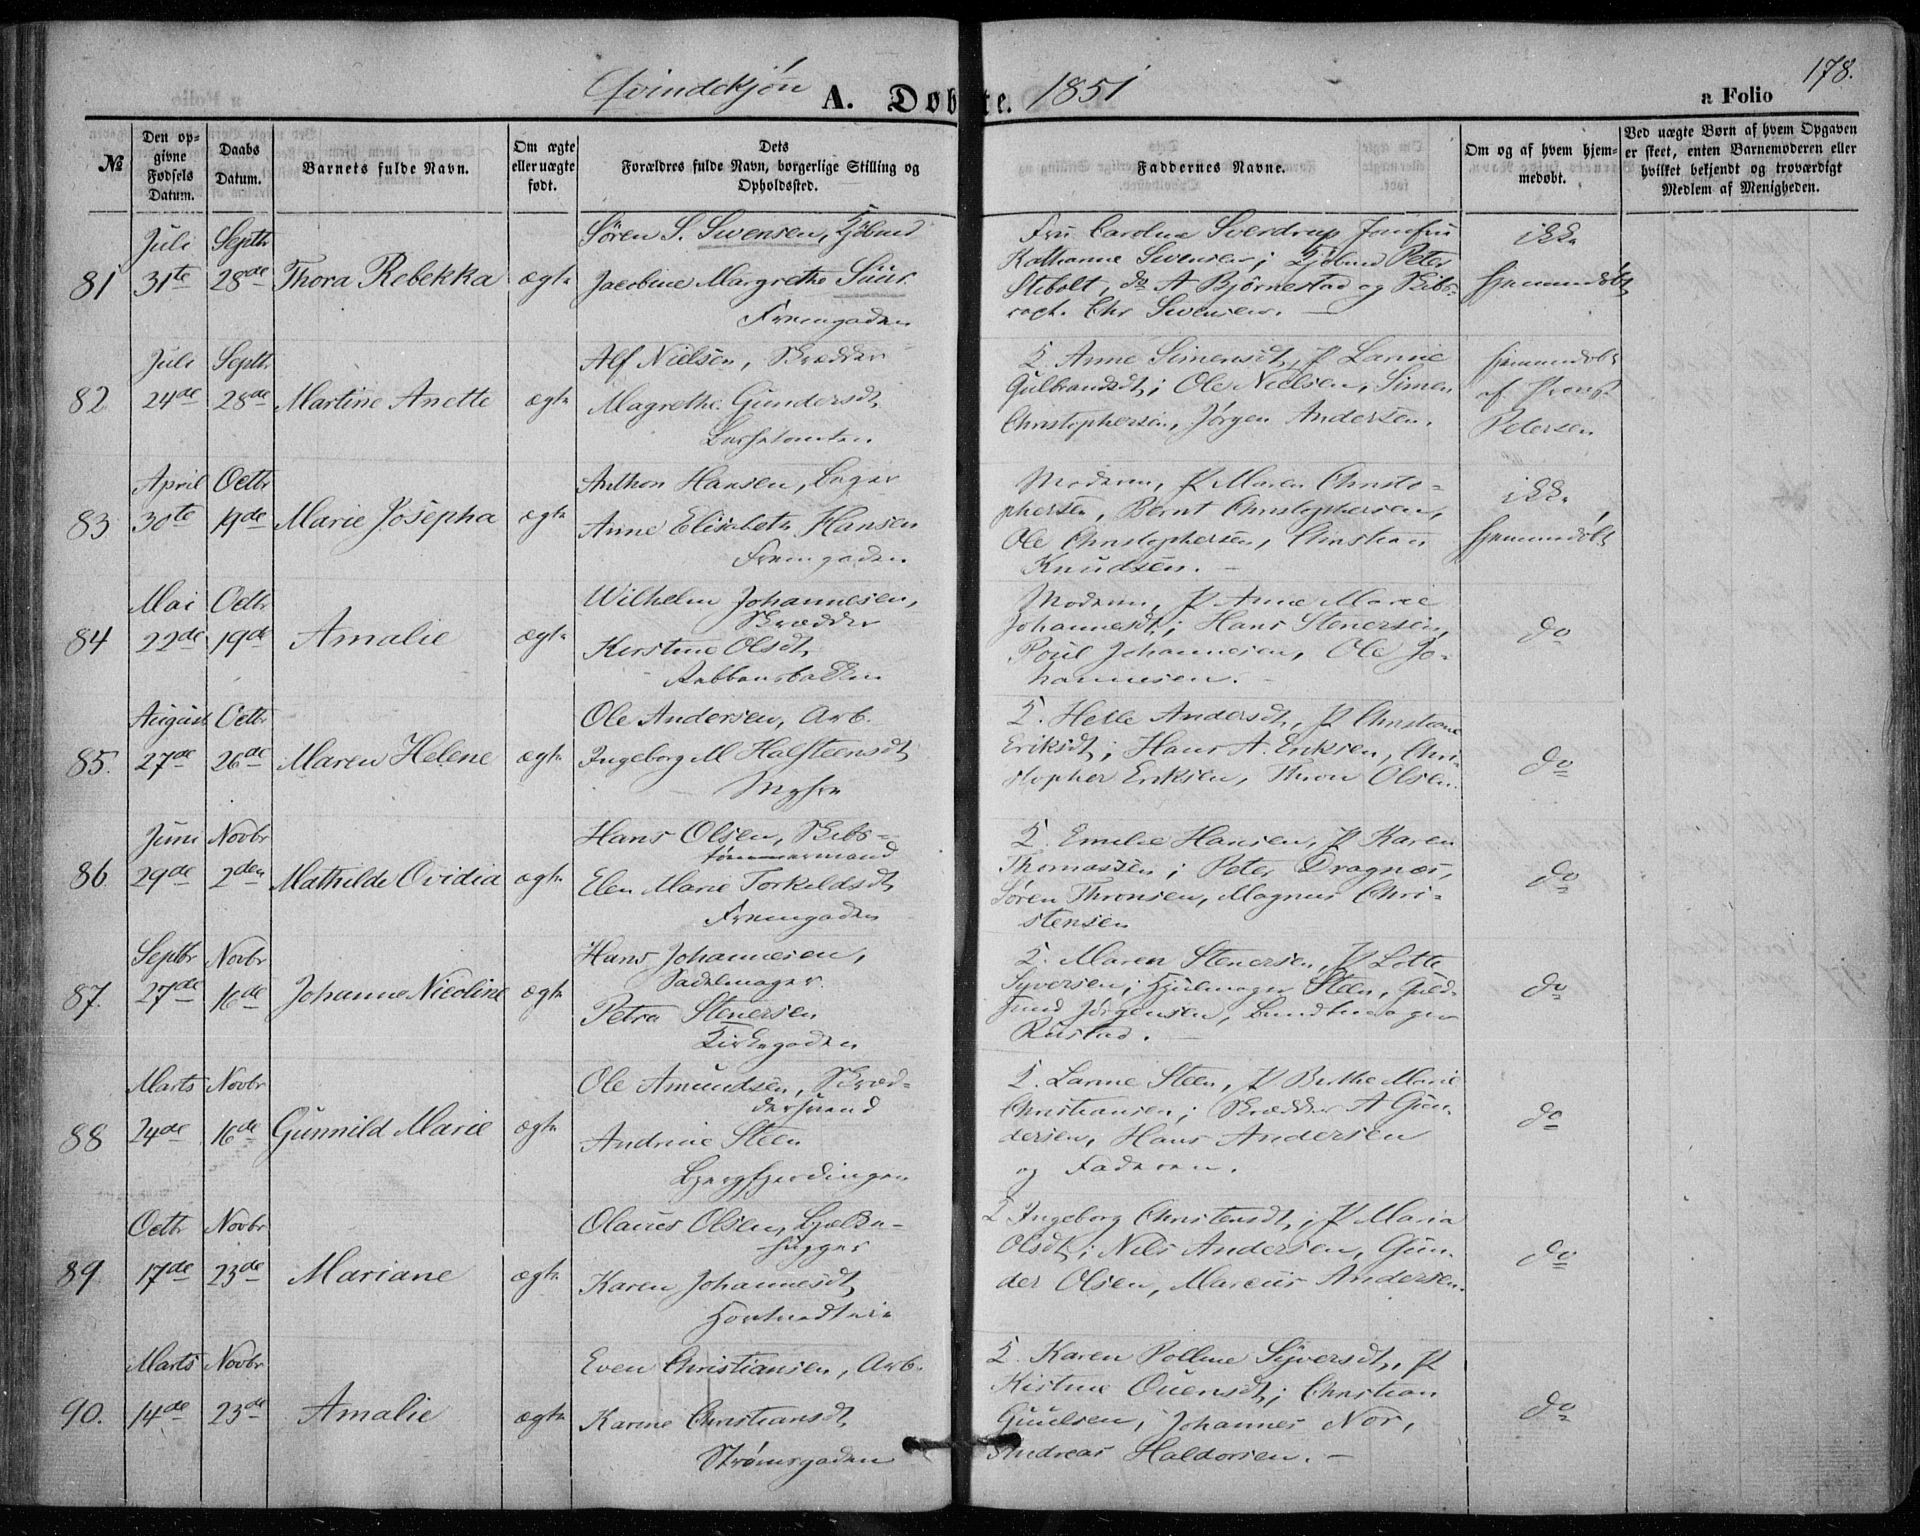 178.
Qvindekjøn A. Døbte. 1851 a Folio
№
Den opgivne Fødsels Datum.
Daabs Datum.
Barnets fulde Navn.
Om ægte eller uægte født.
Dets Forældres fulde Navn, borgerlige Stilling og Opholdssted.
Faddernes Navne.
Om og af hvem hjemmedøbt.
Ved uægte Børn af hvem Opgaven er skeet, enten Barnemoderen eller hvilket bekjendt og troværdigt Medlem af Menigheden.
81 Juli 31te Septbr 28de Thora Rebekka ægte
Søren S. Swensen, Kjøbmd
Jacobine Margrethe Suur
Fremgaden
Fru Caroline Sverdrup Jomfru
Kathanne Swensen; Kjøbmd Peter
Stibolt, do A Bjørnestad og Skibs-
Chr Swensen. —
ikke
hjemmedøbt
82 Juli 24de Septbr 28de Martine Anette ægte
Alf Nielsen, Skrædder
Magrethe Gundersdt,
K. Anne Simensdt, P Lanne
Gulbrandsdt; Ole Nielsen, Simen
Christophersen, Jørgen Andersen.
hjemmedøbt
af Præst
Petersen
83 April 30te Octbr 19de Marie Josepha ægte
Anthon Hansen, Bager
Anne Elisabeth Hansen
Fremgaden
Moderen, P Maren Christo-
phersen, Bernt Christophersen,
Ole Christophersen, Christian
Knudsen. —
ikke
hjemmedøbt
84 Mai 22de Octbr 19de Amalie ægte
Wilhelm Johannesen,
Skrædder
Kirstine Olsdt,
Labbensbakken
Moderen, P Anne Marie
Johannesdt; Hans Stenersen,
Poul Johannesen, Ole Jo-
hannesen. —
do
85. August 27de Octbr 26de Maren Helene ægte
Ole Andersen, Arb.
Ingeborg M Halsteensdt
Myhre
K. Helle Andersdt, P Christiane
Eriksdt; Hans A. Eriksen, Chri-
stopher Eriksen, Thron Olsen.
do
86 Juni 29de Novbr 2den Mathilde Ovidia ægte
Hans Olsen, Skibs-
tømmermand
Elen Marie Torkeldsdt
Fremgaden
K. Emelie Hansen, P Karen
Thomassen; Peter Dragnæs,
Søren Thronsen, Magnus Chri-
stensen
do
87. Septbr 27de Novbr 16de Johanne Nicoline ægte
Hans Johannesen,
Sadelmager.
Petra Stenersen
Kirkegaden
K. Maren Stenersen, P Lotte
Syversen; Hjulmager Steen, Guld-
smd Jørgensen, Bundtmager
Rustad. —
do
88 Marts 24de Novbr 16de Gunnild Marie ægte
Ole Amundsen, Skræd-
dersvend
Andrine Steen
Bjergfjerdingen
K. Lanne Steen, P Berthe Marie
Christiansen; Skrædder A Gun-
dersen, Hans Andersen
og Faderen.
do
89 Octbr 17de Novbr 23de Mariane ægte
Olaus Olsen, Bjelke-
hugger
Karen Johannesdt,
K Ingeborg Christensdt,; P Maria
Olsdt; Nils Andersen, Gun-
der Olsen, Marcus Andersen.
do
90. Marts 14de Novbr 23de Amalie ægte
Even Christiansen, Arb.
Karine Christiansdt,
Strømsgaden
K. Karen Polline Syversdt,, P
Kistine Ouensdt; Christian
Guulsen, Johannes Nor,
Andreas Haldorsen. —
do